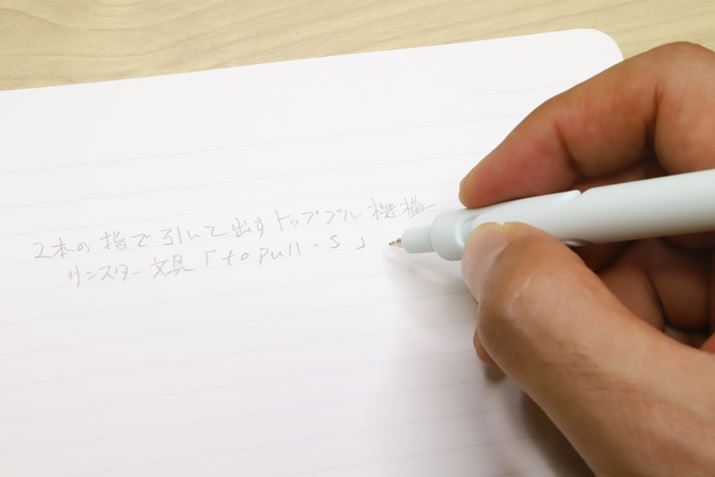 2本の指で引いて出すトッププル機構
サンスター文具「topull-S」